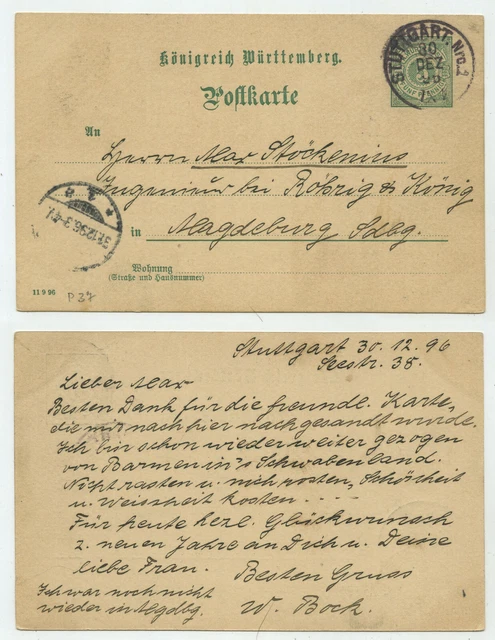 Königreich Württemberg.
Postkarte
STUTTGART. Nro. 1
30
DEZ
96
FÜNF PFENNIG
An
Herrn Max Stöckenius
Ingenieur bei Röhrig & König
in Magdeburg Sdbg.
31.12.96.3-4
Wohnung
(Straße und Hausnummer)
11 9 96
P 37
Stuttgart 30.12.96
Seestr. 38.
Lieber Max
Besten Dank für die freundl. Karte,
die mir nach hier nachgesandt wurde.
Ich bin schon wieder weiter gezogen
von Barmen in's Schwabenland.
Nicht rasten u. nich rosten, Schönheit
u. Weissheit kosten . . . .
Für heute herzl. Glückwunsch
z. neuen Jahre an Dich u. Deine
liebe Frau.
Besten Gruss
W. Bock.
Ich war noch nicht
wieder in Mgdbg.